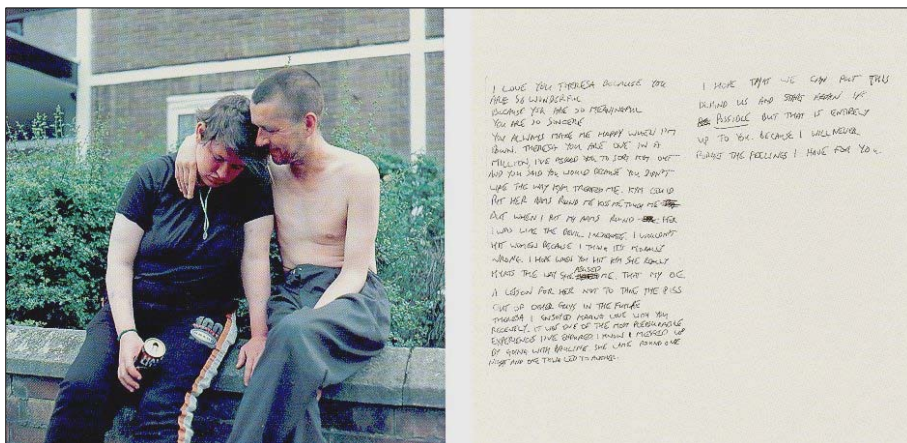 I LOVE YOU THERESA BECAUSE YOU
ARE SO WONDERFUL
BECAUSE YOU ARE SO MEANINGFUL
YOU ARE SO SINCERE
YOU ALWAYS MADE ME HAPPY WHEN I'M
DOWN. THERESA YOU ARE ONE IN A
MILLION, I'VE ASKED YOU TO SORT KIM OUT
AND YOU SAID YOU WOULD BECAUSE YOU DIDN'T
LIKE THE WAY KIM TREATED ME. KIM COULD
PUT HER ARMS ROUND ME KISS ME TOUCH ME
BUT WHEN I PUT MY ARMS ROUND HER
I WAS LIKE THE DEVIL INCARNATE. I WOULDN'T
HIT WOMEN BECAUSE I THINK IT'S MORALLY
WRONG. I HOPE WHEN YOU HIT KIM SHE REALLY
HURTS THE WAY SHE ABUSED ME. THAT MY BE
A LESSON FOR HER NOT TO TAKE THE PISS
OUT OF OTHER GUYS IN THE FUTURE
THERESA I ENJOYED MAKING LOVE WITH YOU
RECENTLY. IT WAS ONE OF THE MOST PLEASURABLE
EXPERIENCE I'VE ENJOYED I KNOW I MESSED UP
BY GOING WITH PAULINE SHE CAME ROUND ONE
NIGHT AND ONE THING LED TO ANOTHER.
I HOPE THAT WE CAN PUT THIS
BEHIND US AND START AGAIN IF
POSSIBLE BUT THAT IS ENTIRELY
UP TO YOU. BECAUSE I WILL NEVER
FORGET THE FEELINGS I HAVE FOR YOU.